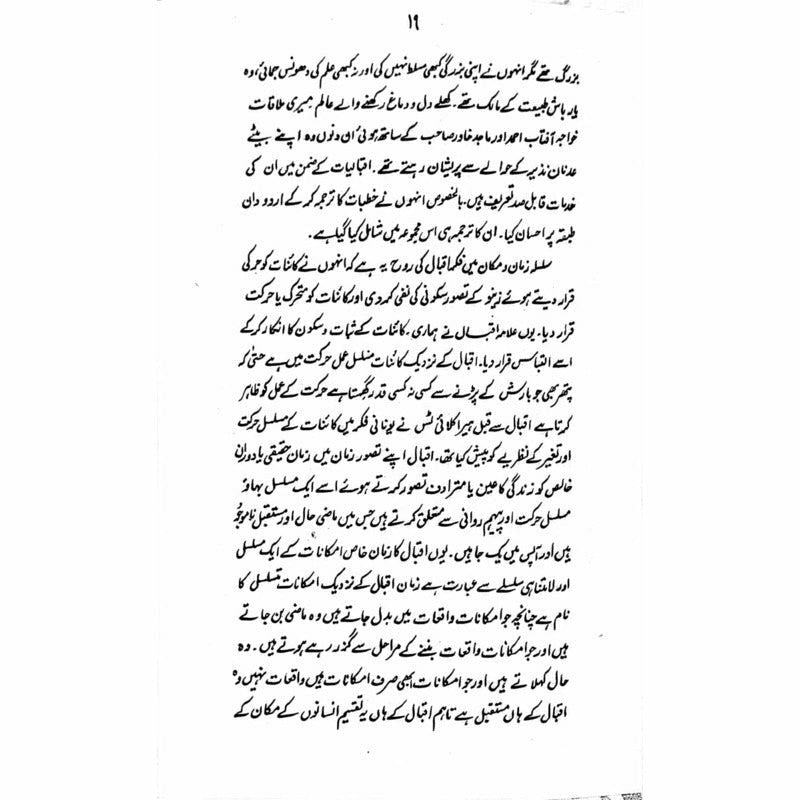 ۱۹
بزرگ تھے مگر انہوں نے اپنی بزرگی کبھی مسلط نہیں کی اور نہ کبھی علم کی دھونس جمائی، وہ
یار باش طبیعت کے مالک تھے۔ کھلے دل و دماغ رکھنے والے عالم میری ملاقات
خواجہ آفتاب احمد اور ماجد خاور صاحب کے ساتھ ہوئی ان دنوں وہ اپنے بیٹے
عدنان نذیر کے حوالے سے پریشان رہتے تھے۔ اقبالیات کے ضمن میں ان کی
خدمات قابل صد تعریف ہیں۔ بالخصوص انہوں نے خطبات کا ترجمہ کر کے اردو دان
طبقہ پر احسان کیا۔ ان کا ترجمہ ہی اس مجموعہ میں شامل کیا گیا ہے۔
سلسلہ زمان و مکان میں فکر اقبال کی روح یہ ہے کہ انہوں نے کائنات کو حرکی
قرار دیتے ہوئے زینو کے تصور سکونی کی نفی کر دی اور کائنات کو متحرک یا حرکت
قرار دیا۔ یوں علامہ اقبال نے ہماری۔ کائنات کے ثبات و سکون کا انکار کر کے
اسے التباس قرار دیا۔ اقبال کے نزدیک کائنات مسلسل عمل حرکت میں ہے حتیٰ کہ
پتھر بھی جو بارش کے پڑنے سے کسی نہ کسی قدر گھستا ہے حرکت کے عمل کو ظاہر
کرتا ہے اقبال سے قبل ہیراکلائی ٹس نے یونانی فکر میں کائنات کے مسلسل حرکت
اور تغیر کے نظریے کو پیش کیا تھا۔ اقبال اپنے تصور زمان میں زمان حقیقی یا دوران
خالص کو زندگی کا عین یا مترادف تصور کرتے ہوئے اسے ایک مسلسل بہاؤ
مسلسل حرکت اور پیہم روانی سے متعلق کرتے ہیں جس میں ماضی حال اور مستقبل ناموجود
ہیں اور آپس میں یک جا ہیں۔ یوں اقبال کا زمان خاص امکانات کے ایک مسلسل
اور لامتناہی سلسلے سے عبارت ہے زمان اقبال کے نزدیک امکانات تسلسل کا
نام ہے چنانچہ جو امکانات واقعات میں بدل جاتے ہیں وہ ماضی بن جاتے
ہیں اور جو امکانات واقعات بننے کے مراحل سے گزر رہے ہوتے ہیں۔ وہ
حال کہلاتے ہیں اور جو امکانات ابھی صرف امکانات ہیں واقعات نہیں وہ
اقبال کے ہاں مستقبل ہے تاہم اقبال کے ہاں یہ تقسیم انسانوں کے مکان کے